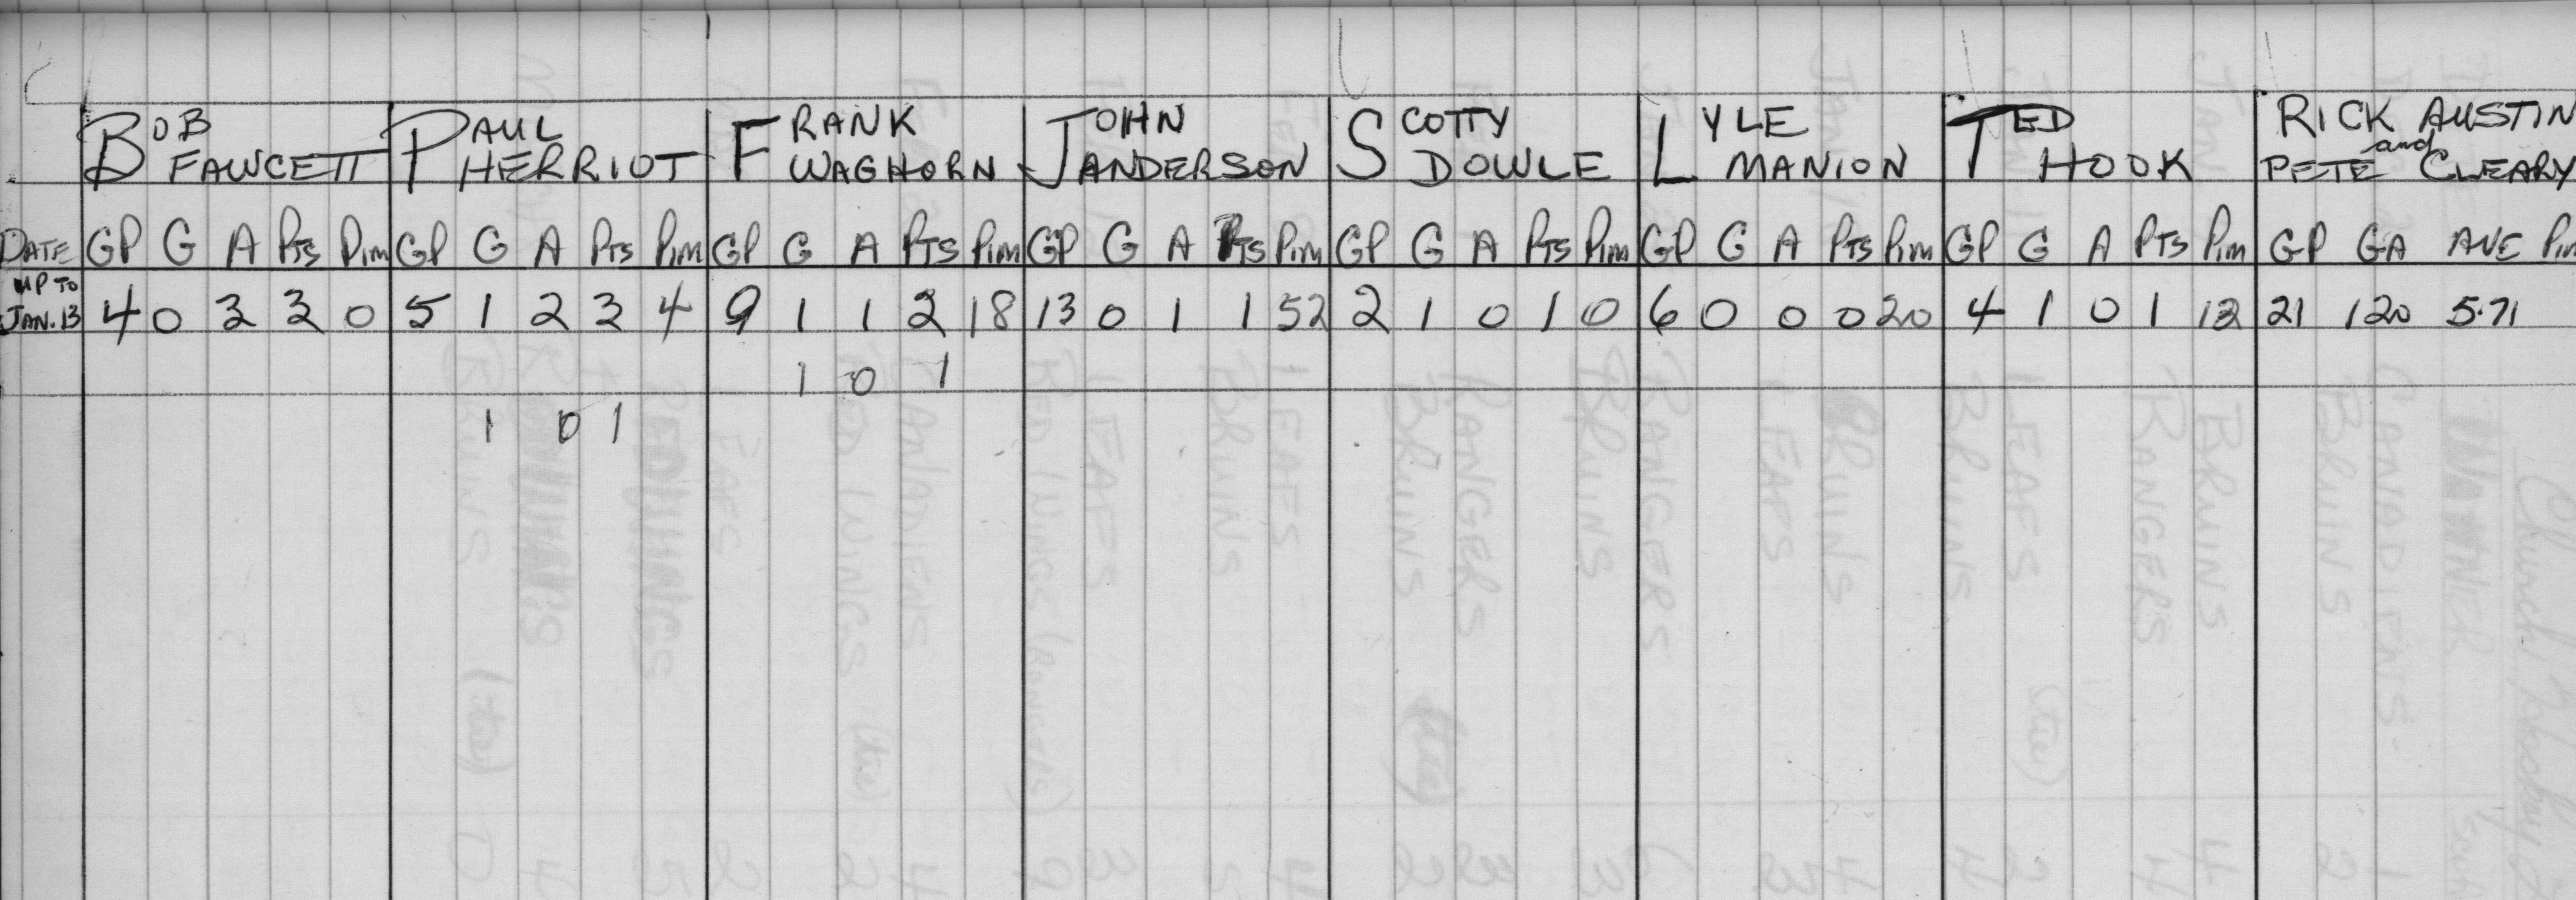 BOB PAUL FRANK JOHN SCOTTY LYLE TED RICK AUSTIN
and
FAWCETT HERRIOT WAGHORN ANDERSON DOWLE MANION HOOK PETE CLEARY
DATE GP G A PTS Pim GP G A PTS Pim GP G A PTS Pim GP G A PTS Pim GP G A PTS Pim GP G A PTS Pim GP G A PTS Pim GP GA AVE
UP TO
JAN. 13 4 0 3 3 0 5 1 2 3 4 9 1 1 2 18 13 0 1 1 52 2 1 0 1 0 6 0 0 0 20 4 1 0 1 12 21 120 5.71
1 0 1
1 0 1